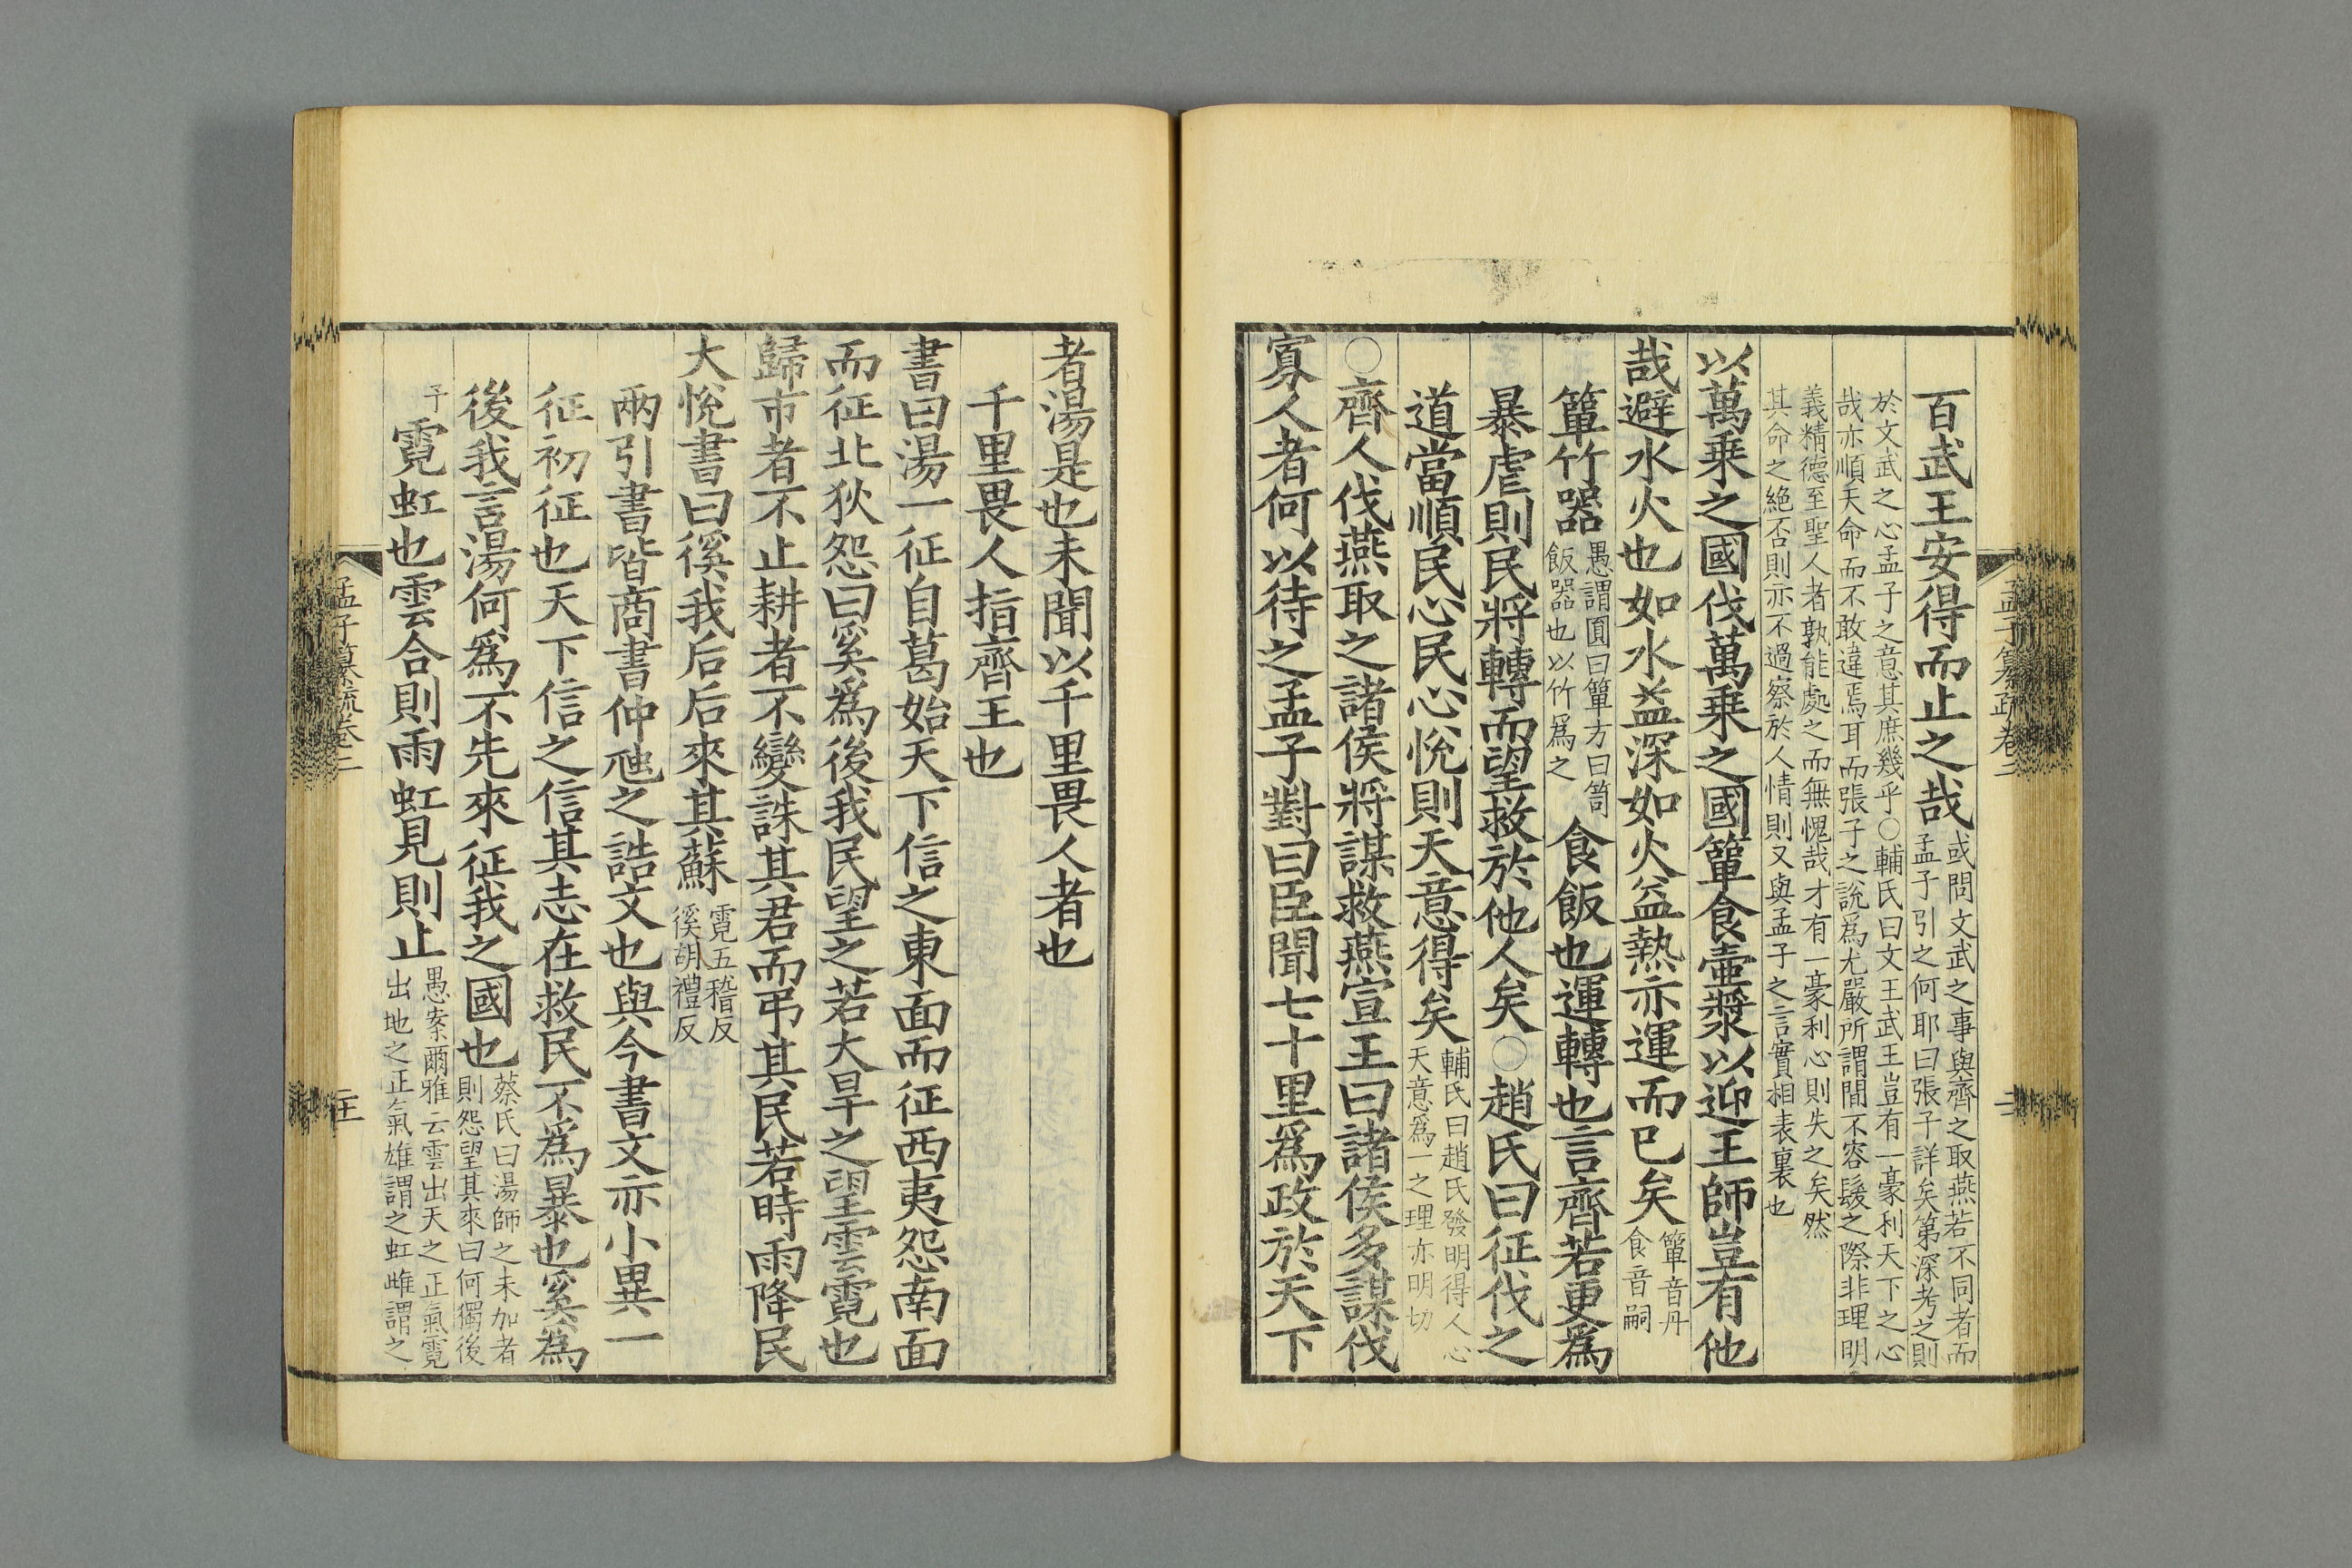 百武王安得而止之哉或問文武之事與齊之取燕若不同者而孟子引之何耶曰張子詳矣第深考之則
於文武之心孟子之意其庶幾乎○輔氏曰文王武王豈有一豪利天下之心哉亦順天命而不敢違焉耳而張子之說爲尤嚴所謂間不容髮之際非理明
義精德至聖人者孰能處之而無愧哉才有一豪利心則失之矣然其命之絶否則亦不過察於人情則又與孟子之言實相表裏也
以萬乗之國伐萬乗之國簞食壷漿以迎王師豈有他
哉避水火也如水益深如火益熱亦運而已矣簞音丹食音嗣
簞竹器愚謂圓曰簞方曰笥飯器也以竹爲之食飯也運轉也言齊若更爲
暴虐則民將轉而望救於他人矣○趙氏曰征伐之
道當順民心民心悅則天意得矣輔氏曰趙氏發明得人心天意爲一之理亦明切
○齊人伐燕取之諸侯將謀救燕宣王曰諸侯多謀伐
寡人者何以待之孟子對曰臣聞七十里爲政於天下
孟子纂疏卷二
者湯是也未聞以千里畏人者也
千里畏人指齊王也
書曰湯一征自葛始天下信之東面而征西夷怨南面
而征北狄怨曰奚爲後我民望之若大旱之望雲霓也
歸市者不止耕者不變誅其君而弔其民若時雨降民
大悅書曰徯我后后來其蘇霓五稽反徯胡禮反
兩引書皆商書仲虺之誥文也與今書文亦小異一
征初征也天下信之信其志在救民不爲暴也奚爲
後我言湯何爲不先來征我之國也蔡氏曰湯師之未加者則怨望其來曰何獨後
予霓虹也雲合則雨虹見則止愚案爾雅云雲出天之正氣霓出地之正氣雄謂之虹雌謂之
孟子纂疏卷二